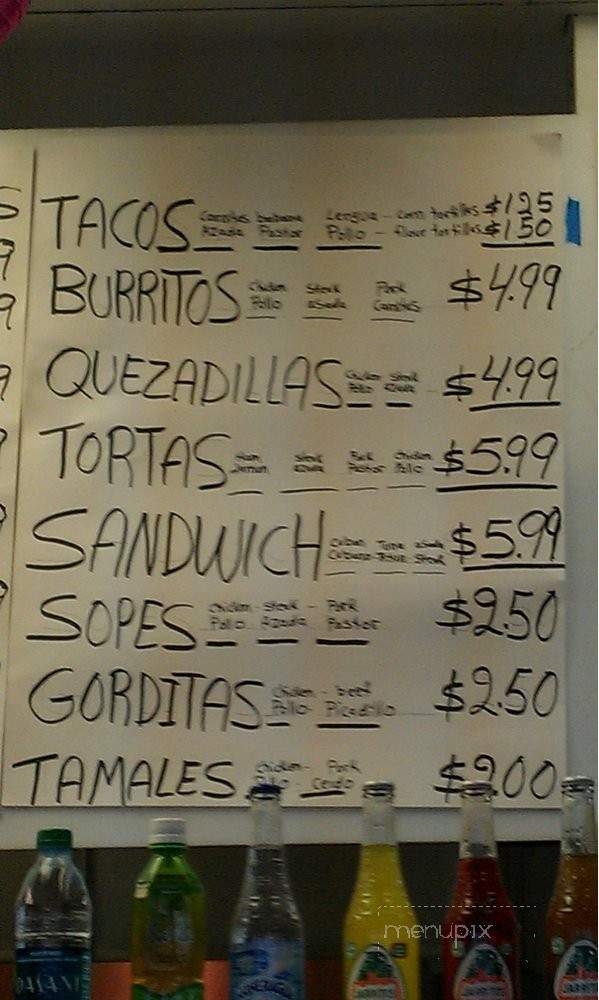 TACOS Carnitas barbacoa Lengua - corn tortillas $1.25
Azada Pastor Pollo - flour tortillas $1.50
BURRITOS Chicken Steak Pork $4.99
Pollo asada Carnitas
QUEZADILLAS Chicken Steak $4.99
Pollo Azada
TORTAS Ham Steak Pork Chicken $5.99
Jamon Azada Pastor Pollo
SANDWICH Cuban Tuna asada $5.99
Cubano Steak
SOPES Chicken - Steak - Pork $2.50
Pollo Azada Pastor
GORDITAS Chicken - beef $2.50
Pollo Picadillo
TAMALES Chicken - Pork $2.00
Pollo - Cerdo
DASANI
JARRITOS
JARRITOS
JARRITOS
menupix